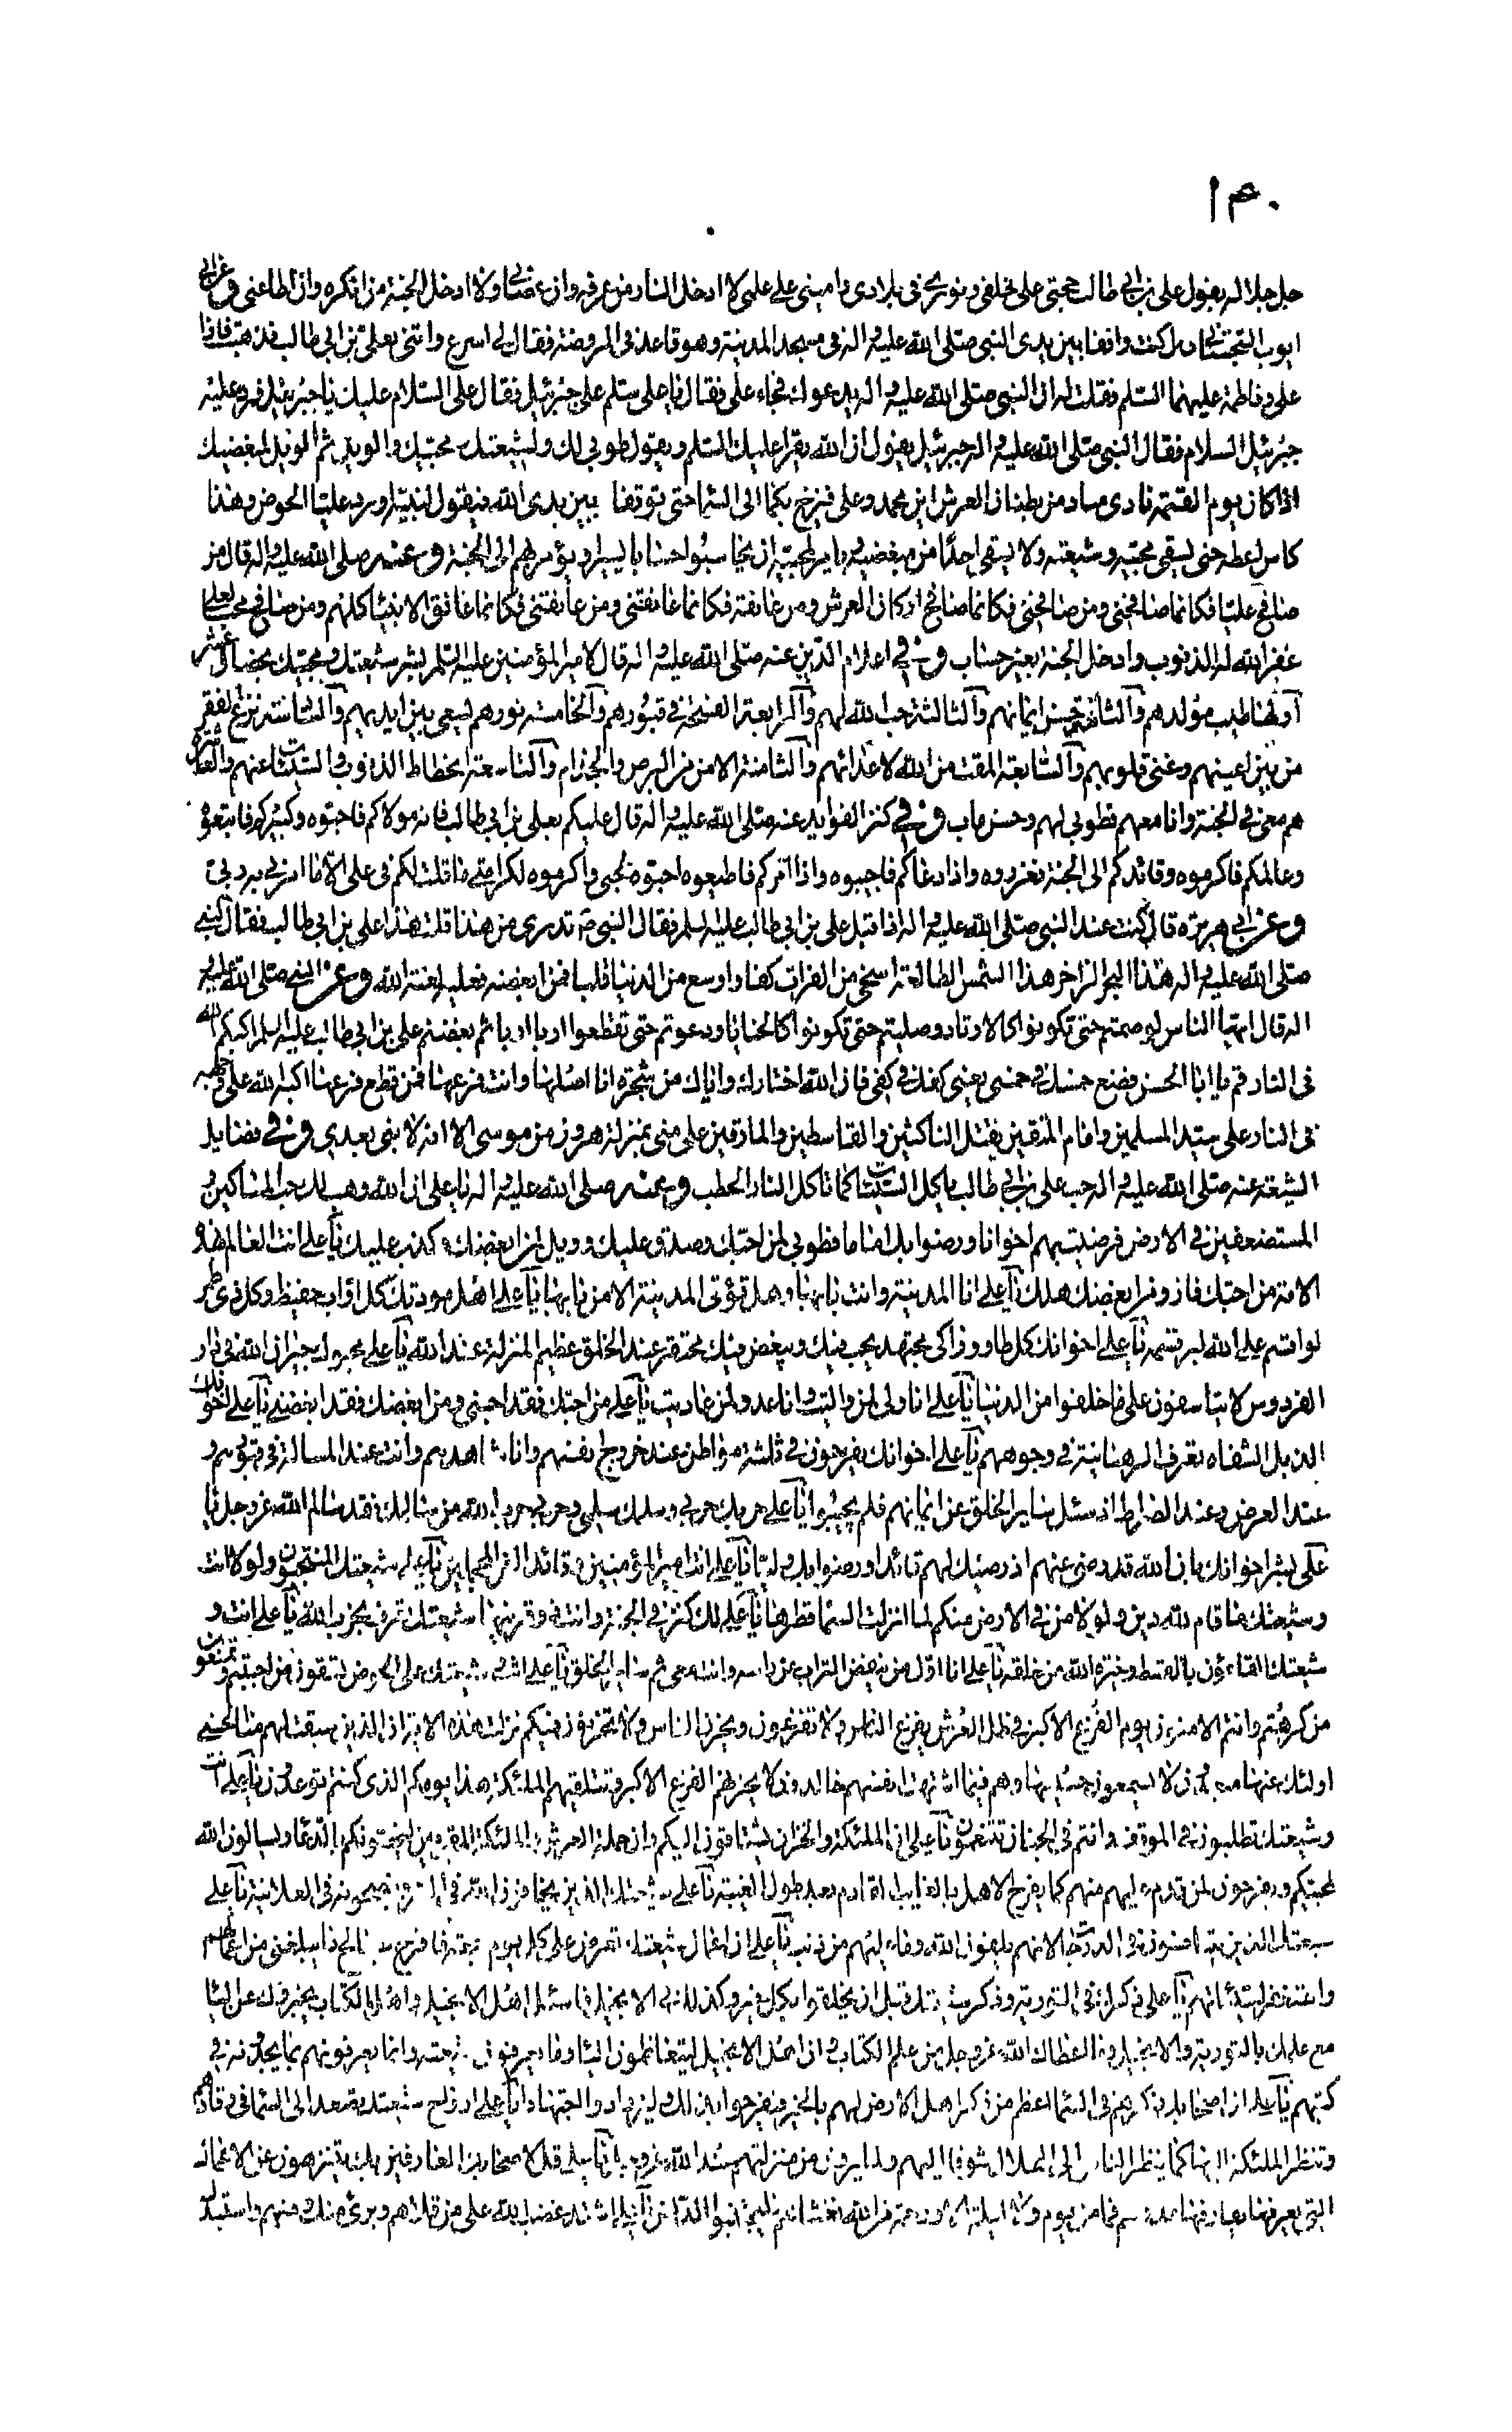 ١٣٠
جل جلاله يقول علي بن ابي طالب حجتي على خلقي ونوري في بلادي واميني على علمي لا ادخل النار من عرفه وان عصاني ولا ادخل الجنة من انكره وان اطاعني وعن ابي
ايوب السجستاني قال كنت واقفا بين يدي النبي صلى الله عليه واله في مسجد المدينة وهو قاعد في الروضة فقال لي اسرع وائتني بعلي بن ابي طالب فذهبت فاذا
علي وفاطمة عليهما السلم فقلت له ان النبي صلى الله عليه واله يدعوك فجاء علي فقال يا علي سلم على جبرئيل فقال علي السلام عليك يا جبرئيل فرد عليه
جبرئيل السلام فقال النبي صلى الله عليه واله جبرئيل يقول ان الله يقرا عليك السلم ويقول طوبى لك ولشيعتك ومحبيك والويل ثم الويل لمبغضيك
اذا كان يوم القيمة نادى مناد من بطنان العرش اين محمد وعلي فيزخ بكما الى السما حتى توقفا بين يدي الله فيقول لنبيه اورد عليا الحوض وهذا
كاس اعطه حتى يسقي محبيه وشيعته ولا يسقي احدا من مبغضيه ويامر لمحبيه ان يحاسبوا حسابا يسيرا ويؤمر بهم الى الجنة وعنه صلى الله عليه واله قال من
صافح عليا فكانما صافحني ومن صافحني فكانما صافح اركان العرش ومن عانقه فكانما عانقني ومن عانقني فكانما عانق الانبيا كلهم ومن صافح محبا لعلي
غفر الله له الذنوب وادخل الجنة بغير حساب وفي اعلام الدين عنه صلى الله عليه واله قال لامير المؤمنين عليه السلم بشر شيعتك ومحبيك بخصال عشر
اولها طيب مولدهم والثانية حسن ايمانهم والثالثة حب الله لهم والرابعة الفسحة في قبورهم والخامسة نورهم يسعى بين ايديهم والسادسة نزع الفقر
من بين اعينهم وغنى قلوبهم والسابعة المقت من الله لاعدائهم والثامنة الامن من البرص والجذام والتاسعة انحطاط الذنوب والسيئات عنهم والعاشرة
هم معي في الجنة وانا معهم فطوبى لهم وحسن ماب وفي كنز الفوايد عنه صلى الله عليه واله قال عليكم بعلي بن ابي طالب فانه مولاكم فاحبوه وكبيركم فاتبعوه
وعالمكم فاكرموه وقائدكم الى الجنة فعززوه واذا دعاكم فاجيبوه واذا امركم فاطيعوه احبوه لحبي واكرموه لكرامتي ما قلت لكم في علي الا ما امرني به ربي
وعن ابي هريرة قال كنت عند النبي صلى الله عليه واله اذ اقبل علي بن ابي طالب عليه السلم فقال النبي ص تدري من هذا قلت هذا علي بن ابي طالب فقال النبي
صلى الله عليه واله هذا البحر الزاخر هذا الشمس الطالعة اسخى من الفرات كفا واوسع من الدنيا قلبا فمن ابغضه فعليه لعنة الله وعن النبي صلى الله عليه
واله قال ايها الناس لو صمتم حتى تكونوا كالاوتاد وصليتم حتى تكونوا كالحنايا ودعوتم حتى تقطعوا اربا اربا ثم بغضتم علي بن ابي طالب عليه السلم اكبكم الله
في النار قم يا ابا الحسن فضع خمسك في خمسي يعني كفك في كفي فان الله اختارك واياي من شجرة انا اصلها وانت فرعها فمن قطع فرعها اكبه الله على وجهه
في النار علي سيد المسلمين وامام المتقين يقتل الناكثين والقاسطين والمارقين علي مني بمنزلة هرون من موسى الا انه لا نبي بعدي وفي فضايل
الشيعة عنه صلى الله عليه واله حب علي بن ابي طالب ياكل السيئات كما تاكل النار الحطب وعنه صلى الله عليه واله يا علي ان الله وهب لك حب المساكين و
المستضعفين في الارض فرضيت بهم اخوانا ورضوا بك اماما فطوبى لمن احبك وصدق عليك وويل لمن ابغضك وكذب عليك يا علي انت العالم لهذه
الامة من احبك فاز ومن ابغضك هلك يا علي انا المدينة وانت بابها وهل تؤتى المدينة الا من بابها يا علي اهل مودتك كل اواب حفيظ وكل ذي طمر
لو اقسم على الله لبر قسمه يا علي اخوانك كل طاو وزاكي مجتهد يحب فيك ويبغض فيك محتقر عند الخلق عظيم المنزلة عند الله يا علي محبوك جيران الله في دار
الفردوس لا يتاسفون على ما خلفوا من الدنيا يا علي انا ولي لمن واليت وانا عدو لمن عاديت يا علي من احبك فقد احبني ومن ابغضك فقد ابغضني يا علي اخوانك
الذبل الشفاه تعرف الرهبانية في وجوههم يا علي اخوانك يفرحون في ثلثة مواطن عند خروج انفسهم وانا شاهدهم وانت عند المسالة في قبورهم و
عند العرض وعند الصراط اذ سئل ساير الخلق عن ايمانهم فلم يجيبوا يا علي حربك حربي وسلمك سلمي وحربي حرب الله من سالمك فقد سالم الله عز وجل يا
علي بشر اخوانك بان الله قد رضي عنهم اذ رضيك لهم قائدا ورضوا بك وليا يا علي انت امير المؤمنين وقائد الغر المحجلين يا علي شيعتك المنتجبون ولولا انت
وشيعتك ما قام لله دين ولولا من في الارض منكم لما انزلت السما قطرها يا علي لك كنز في الجنة وانت ذو قرنيها شيعتك تعرف بحزب الله يا علي انت و
شيعتك القائمون بالقسط وخيرة الله من خلقه يا علي انا اول من ينفض التراب عن راسه وانت معي ثم ساير الخلق يا علي انت وشيعتك على الحوض تسقون من احببتم وتمنعون
من كرهتم وانتم الامنون يوم الفزع الاكبر في ظل العرش يفزع الناس ولا تفزعون ويحزن الناس ولا تحزنون فيكم نزلت هذه الاية ان الذين سبقت لهم منا الحسنى
اولئك عنها مبعدون لا يسمعون حسيسها وهم فيما اشتهت انفسهم خالدون لا يحزنهم الفزع الاكبر وتتلقيهم الملئكة هذا يومكم الذي كنتم توعدون يا علي انت
وشيعتك تطلبون في الموقف وانتم في الجنان تتنعمون يا علي ان الملئكة والخزان يشتاقون اليكم وان حملة العرش والملئكة المقربين ليخصونكم بالدعا ويسالون الله
لمحبيكم ويفرحون لمن قدم عليهم منهم كما يفرح الاهل بالغايب القادم بعد طول الغيبة يا علي شيعتك الذين يخافون الله في السر وينصحونه في العلانية يا علي
شيعتك الذين يتنافسون في الدرجات لانهم يلقون الله وما عليهم من ذنب يا علي ان اعمال شيعتك تعرض علي كل يوم جمعة فافرح بصالح ما يبلغني من اعمالهم
واستغفر لسيئاتهم يا علي ذكرك في التورية وذكر شيعتك قبل ان يخلقوا بكل خير وكذلك في الانجيل فاسئل اهل الانجيل واهل الكتاب يخبرونك عن اليا
مع علمك بالتورية والانجيل وما اعطاك الله عز وجل من علم الكتاب وان اهل الانجيل ليتعاظمون اليا وما يعرفونه وشيعته وانما يعرفونهم بما يجدونه في
كتبهم يا علي ان اصحابك ذكرهم في السما اعظم من ذكر اهل الارض لهم بالخير فليفرحوا بذلك وليزدادوا اجتهادا يا علي ارواح شيعتك تصعد الى السما في رقادهم
وتنظر الملئكة اليها كما ينظر الناس الى الهلال شوقا اليهم ولما يرون من منزلتهم عند الله عز وجل يا علي قل لاصحابك العارفين بك يتنزهون عن الاعمال
التي يعرفها فما من يوم ولا ليلة الا ورحمة من الله تغشاهم فليجتنبوا الدنس يا علي اشتد غضب الله على من قلاهم وبرئ منك ومنهم واستبدل